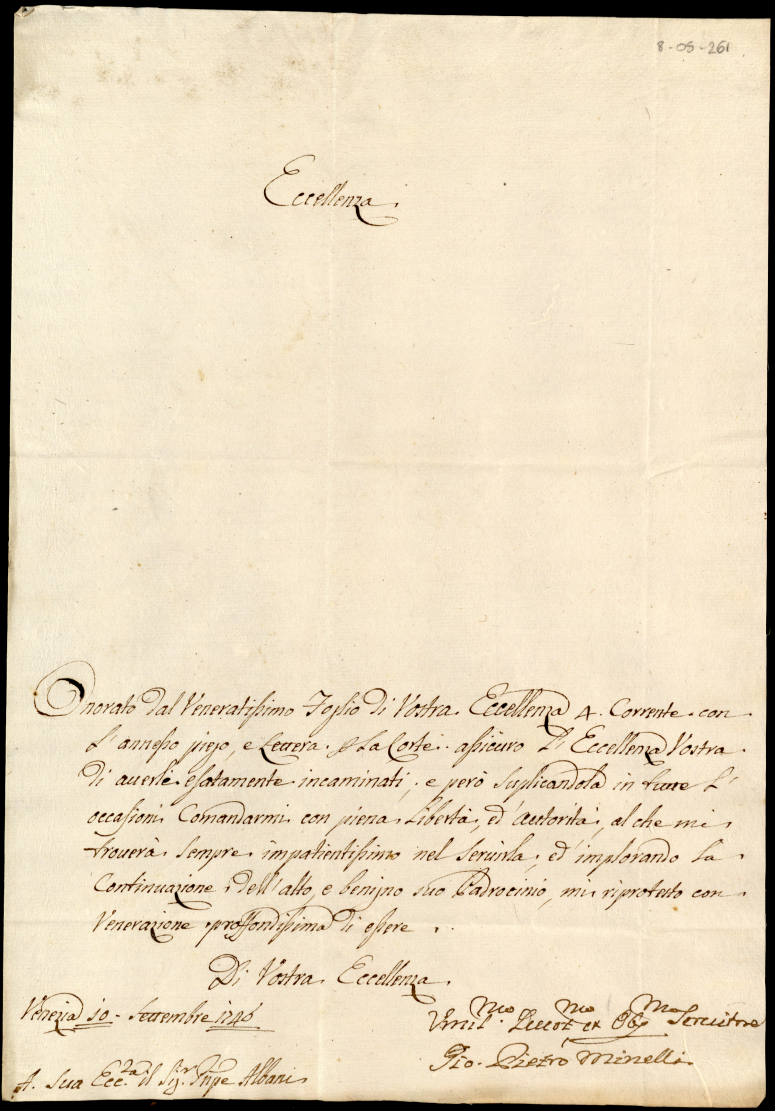 8-05-261
Eccellenza
Onorato dal Veneratissimo Foglio di Vostra Eccellenza 4. Corrente con
l'annesso piego, e Lettera p La Corte assicuro L'Eccellenza Vostra
di auerle esatamente incaminati, e però suplicandola in tutte l'
occasioni Comandarmi con piena Libertà, ed' autorità, al che mi
trouerà sempre impatientissimo nel seruirla, ed' implorando La
Continuazione dell'alto, e benigno suo Padrocinio, mi riprotesto con
Venerazione proffondissima di essere
Di Vostra Eccellenza
Venezia 10 - Settembre 1746
Vmil.mo Deuot.mo et Obg.mo Seruitore
Gio. Pietro Minelli
A Sua Ecc.za il Sig.r Pnpe Albani